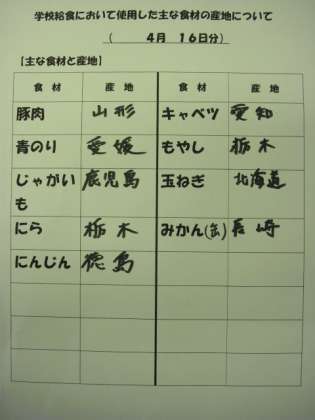 学校給食において使用した主な食材の産地について
（ 4月 16日分）
【主な食材と産地】
食材 産地 食材 産地
豚肉 山形 キャベツ 愛知
青のり 愛媛 もやし 栃木
じゃがいも 鹿児島 玉ねぎ 北海道
にら 栃木 みかん(缶) 長崎
にんじん 徳島